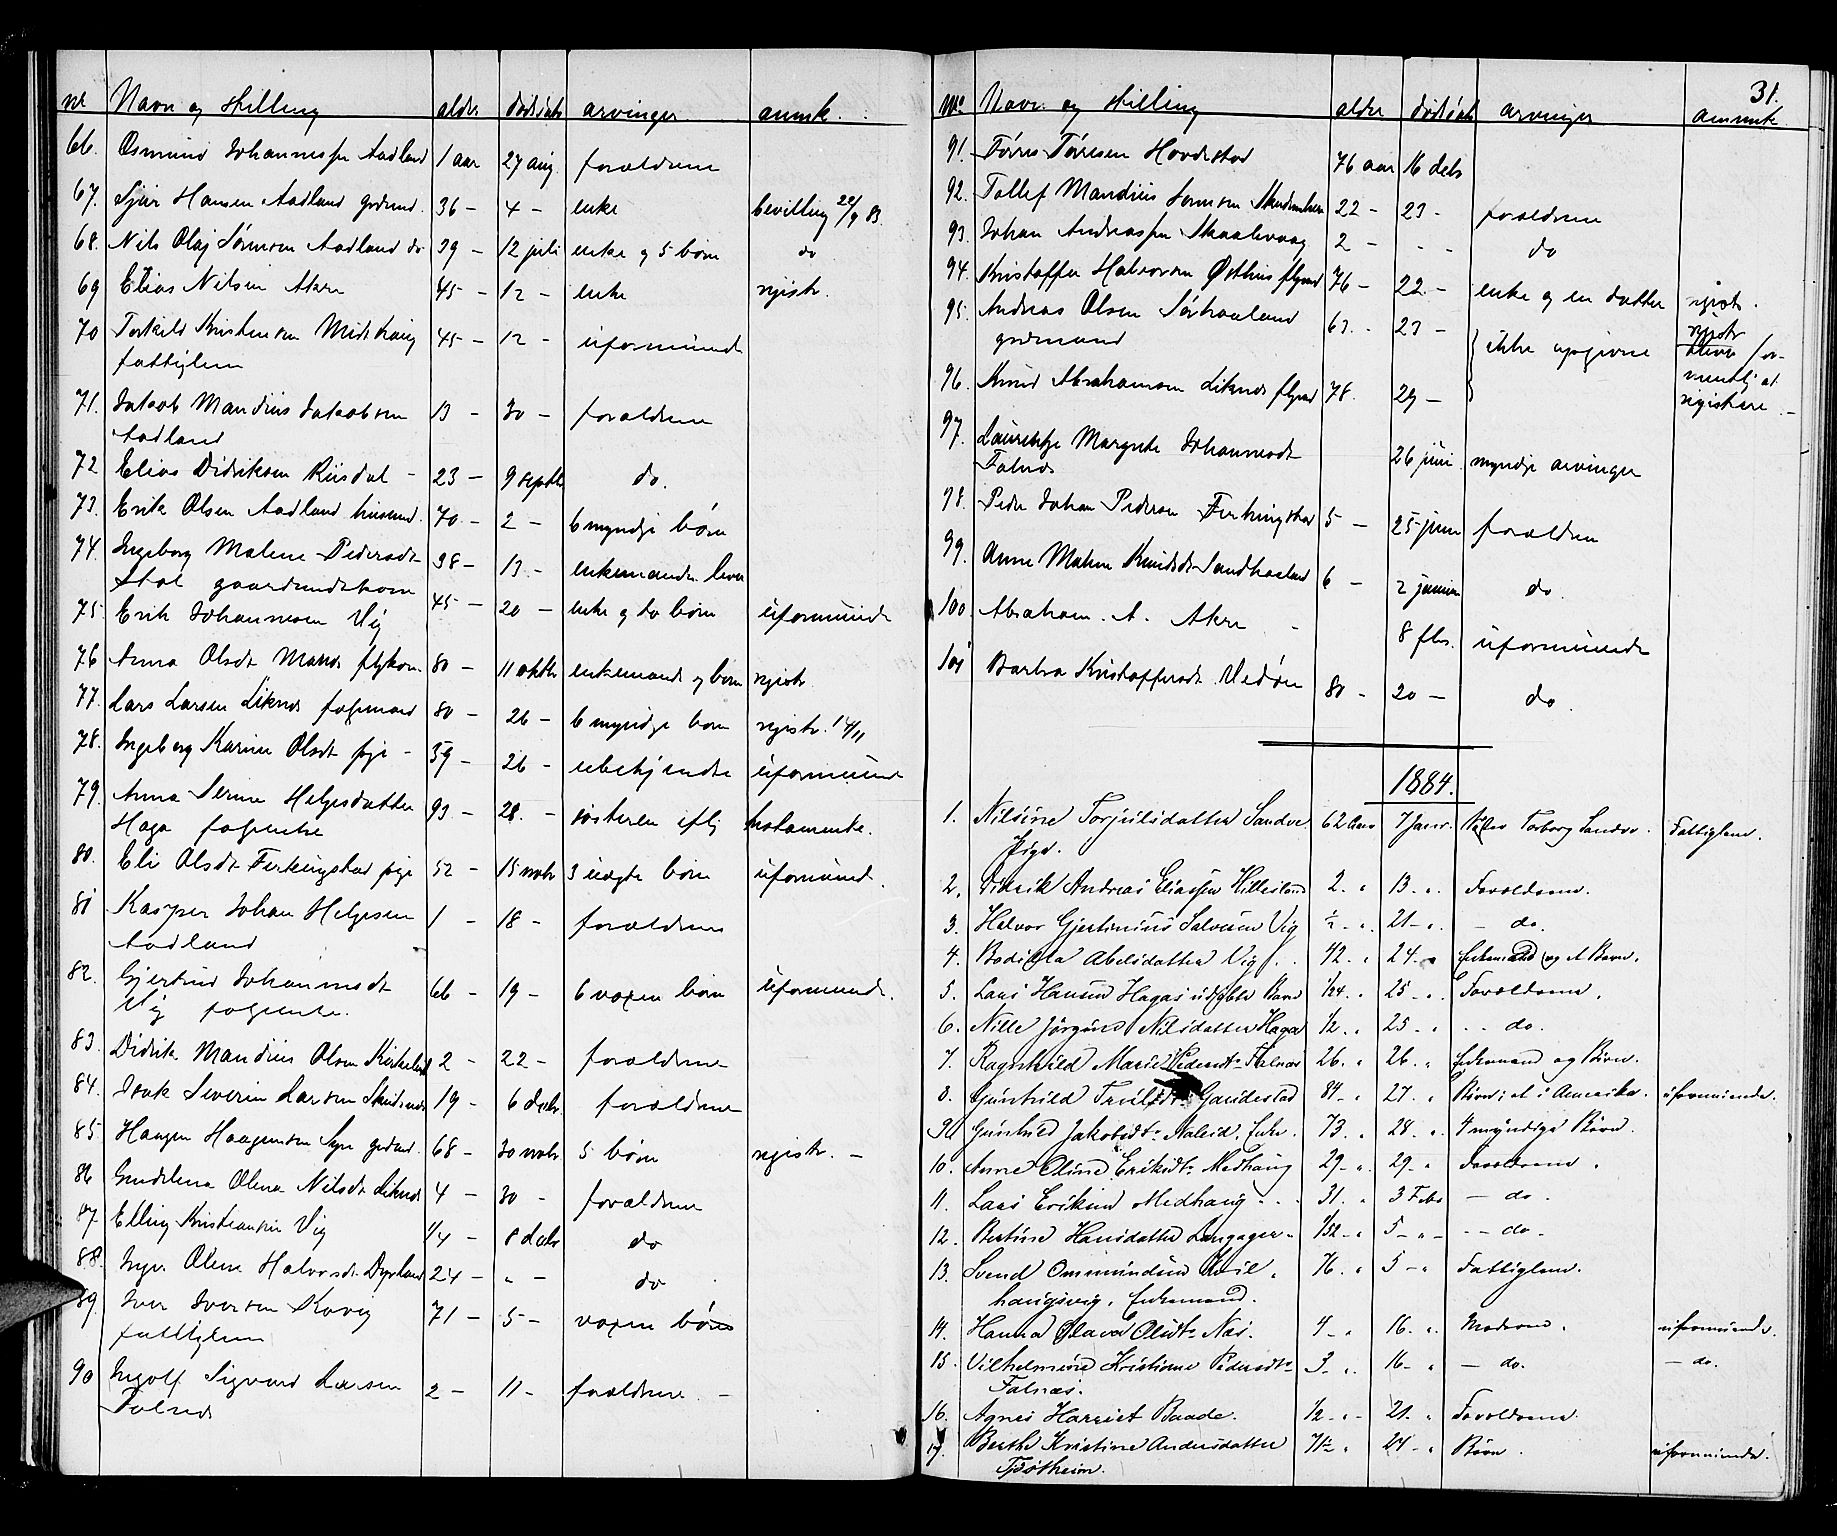 nr Navn og stilling alder dødsdato arvinger anmk.
66. Osmund Johannessen Aadland 1 aar 27 aug. forældrene
67. Sjur Hansen Aadland grdmd. 36 - 4 - enke bevilling 22/9 83.
68. Nils Olaj Sørensen Aadland do 39 - 12 juli enke og 5 børn do
69 Elias Nilsen Akre 45 - 12 - enke registr.
70 Torkild Kristensen Midthaug 45 - 12 - uformuende
fattiglem
71. Jakob Mandius Jakobsen 13 - 30 - forældrene
Aadland
72 Elias Didriksen Riisdal - 23 - 9 septbr do.
73. Erik Olsen Aadland husmd. 70 - 2 - 6 myndige børn
74. Ingeborg Malene Pedersdt 38 - 13 - enkemanden lever
Stol gaardmandskone
75. Erik Johannesen Vig 45 - 20 - enke og to børn uformuende
76 Anna Olsdt Manes flykone 80 - 11 oktbr enkemand og børn registr.
77. Lars Larsen Liknes folgemand 80 - 26 - 6 myndige børn registr. 14/11
78. Ingeborg Karine Olsdt pige - 59 - 26 - ubekjendte uformuend
79. Anna Serine Helgesdatter 93 - 28. - søsteren iflg testamente.
Haga folgeenke
80. Eli Olsdt Ferkingstad pige 52 - 15 novbr 3 uægte børn uformuend.
81 Kasper Johan Helgesen 1 - 18 - forældrene
Aadland
82. Gjertrud Johannesdt 66 - 19 - 6 voxne børn uformuende.
Vig folgeenke.
83. Didrik Mandius Olsen Kirkeleit 2 - 22 - forældrene
84. Isak Severin Larsen Skudenes 19 - 6 decbr. forældrene
85. Haagen Haagensen Syre grdmd. 68 - 30 novbr 5 børn registr. -
86 Gundelena Olena Nilsdt Liknes 4 - 30 - forældrene
87. Elling Kristiansen Vig 1/4 - 8 decbr do
88. Inger Olene Halvorsdt. Dyrland 24 - " - do
89. Iver Iversen Kovig 71 - 5 - voxne børn
fattiglem
90 Ingolf Sigvard Larsen 2 - 11 - forældrene. -
Falnes
31.
No Navn og stilling alder dødsdato arvinger anmk
91. Tørres Tørresen Hovdestad 76 aar 16 decbr
92. Tollef Mandius Tønnesen Skudeneshavn 22 - 23 - forældrene
93. Johan Andreassen Skaalevaag 2 - - - do
94. Kristoffer Halvorsen Østhus flgmd 76 - 22 - enke og en datter registr.
95. Andreas Olsen Sørhaaland 63. - 23 - ikke opgivne registr
grdmand
96. Knud Abrahamsen Liknes flgmd 78. 29 - registrere. -
97. Lauritze Margrete Johannesdt 26 juni myndige arvinger
Falnes
98. Peder Johan Pedersen Ferkingstad 5 - 25 juni forældrene
99. Anne Malene Knudsdt Sandhaaland 6 - 2 januar do.
100. Abraham. A. Akre - 8 fbr. uformuende
101 Barbra Kristoffersdt. Vedøen 80 - 20 - do.
1884.
1. Nilsine Torjulsdatter Sandve. 62 Aar 7 Janr. Torborg Sandve. Fattiglem.
Pige.
2. Didrik Andreas Eliassen Hillesland 2. " 13 - ". Forældrene.
3. Halvor Gjertinius Salvesen Vig 1/2 - ". 21 - ". - do.
4. Bodilla Abelsdatter Vig. 42. " 24 - " Enkemand og et Barn.
5. Lars Hansen Hagas udøbte Barn 1/24. " 25 - ". Forældrene.
6. Nille Jørgine Nilsdatter Haga 1/2. " 25 - " - - do.
7. Ragnhild Marie Pedersdt. Falnes 26. " 26. " Enkemand og Børn.
8. Gunhild Gaudestad 84 - " 27. " Børn; et i Amerika. uformuende.
9. Gunhild Jakobsdt. Enke. 73. " 28. ". 4 myndige Børn.
10. Anne Oline Eriksdt. Medhaug 29 - ". 29 - " Forældrene.
11. Lars Eriksen Medhaug - - . 31. " 3 Febr - do.
12. Bertine Hansdatter Langager - 1/52 - " 5 - " - - - do.
13. Svend Ommundsen Kvil- 76. " 5 - " Fattiglem.
haugsvig, Enkemand.
14. Hanna Olava Olsdt. Næs. 4 - " 16 - ". Moderen. uformuende.
15. Vilhelmine Kristiane Pedersdt. 3 - ". 16 - " - do. - do.
Falnæs.
16. Agnes Harriet Baade. 1/2 - " - 21. " Forældrene.
17. Berthe Kristine Andersdatter 71 1/2 " 24 - " Børn. uformuende.
Tjøstheim.